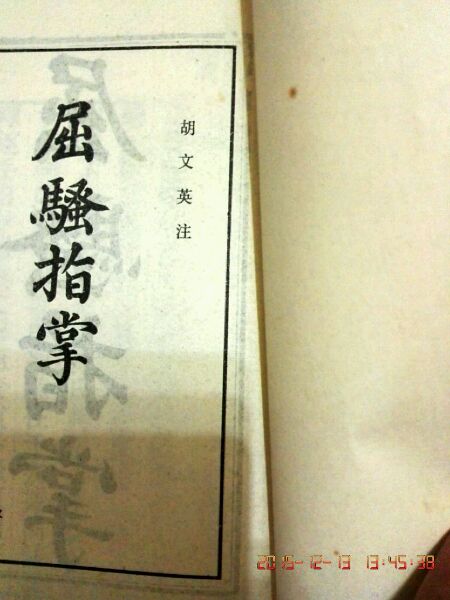 胡文英注
屈騷指掌
2015-12-13 13:45:38